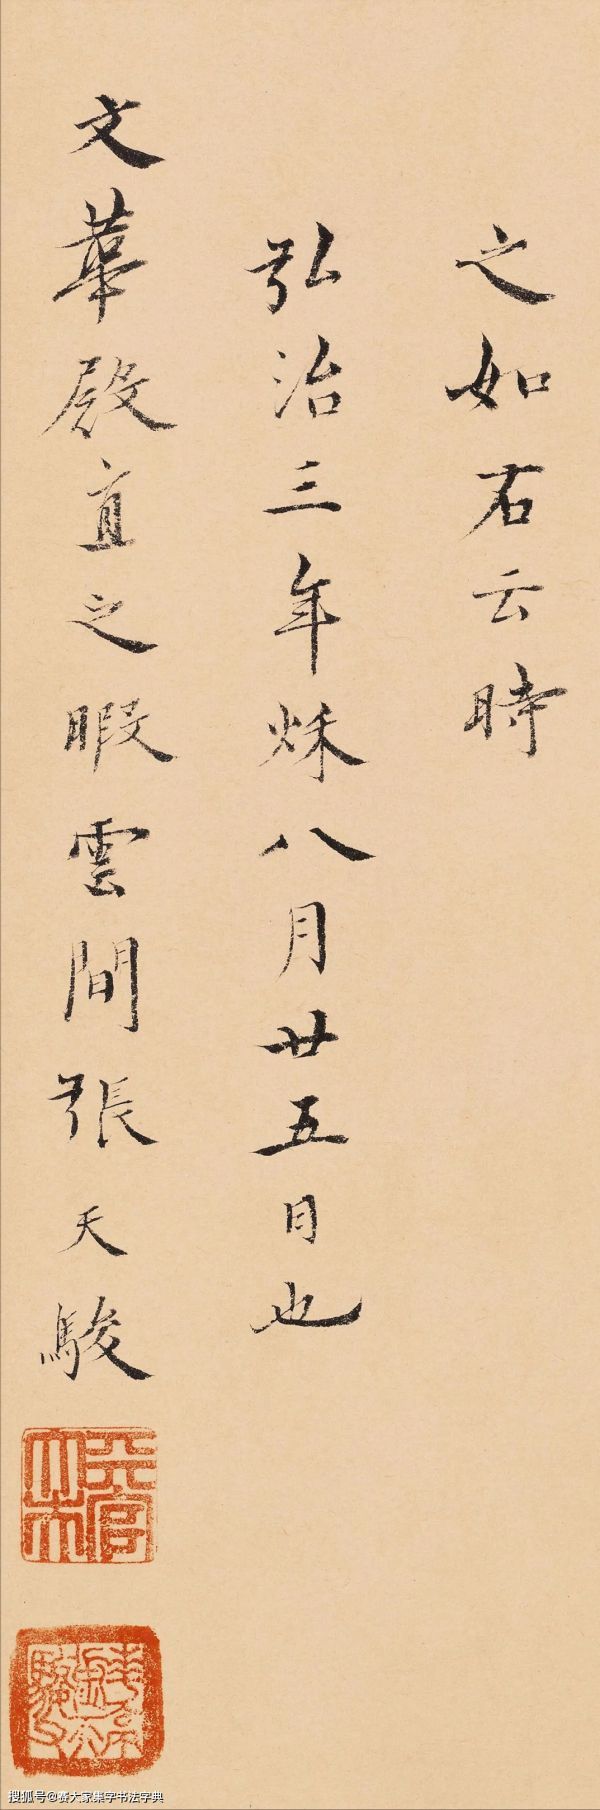 之如右云時
弘治三年秌八月廿五日也
文華殿直之暇雲間張天駿
搜狐号@赛大家集字书法字典